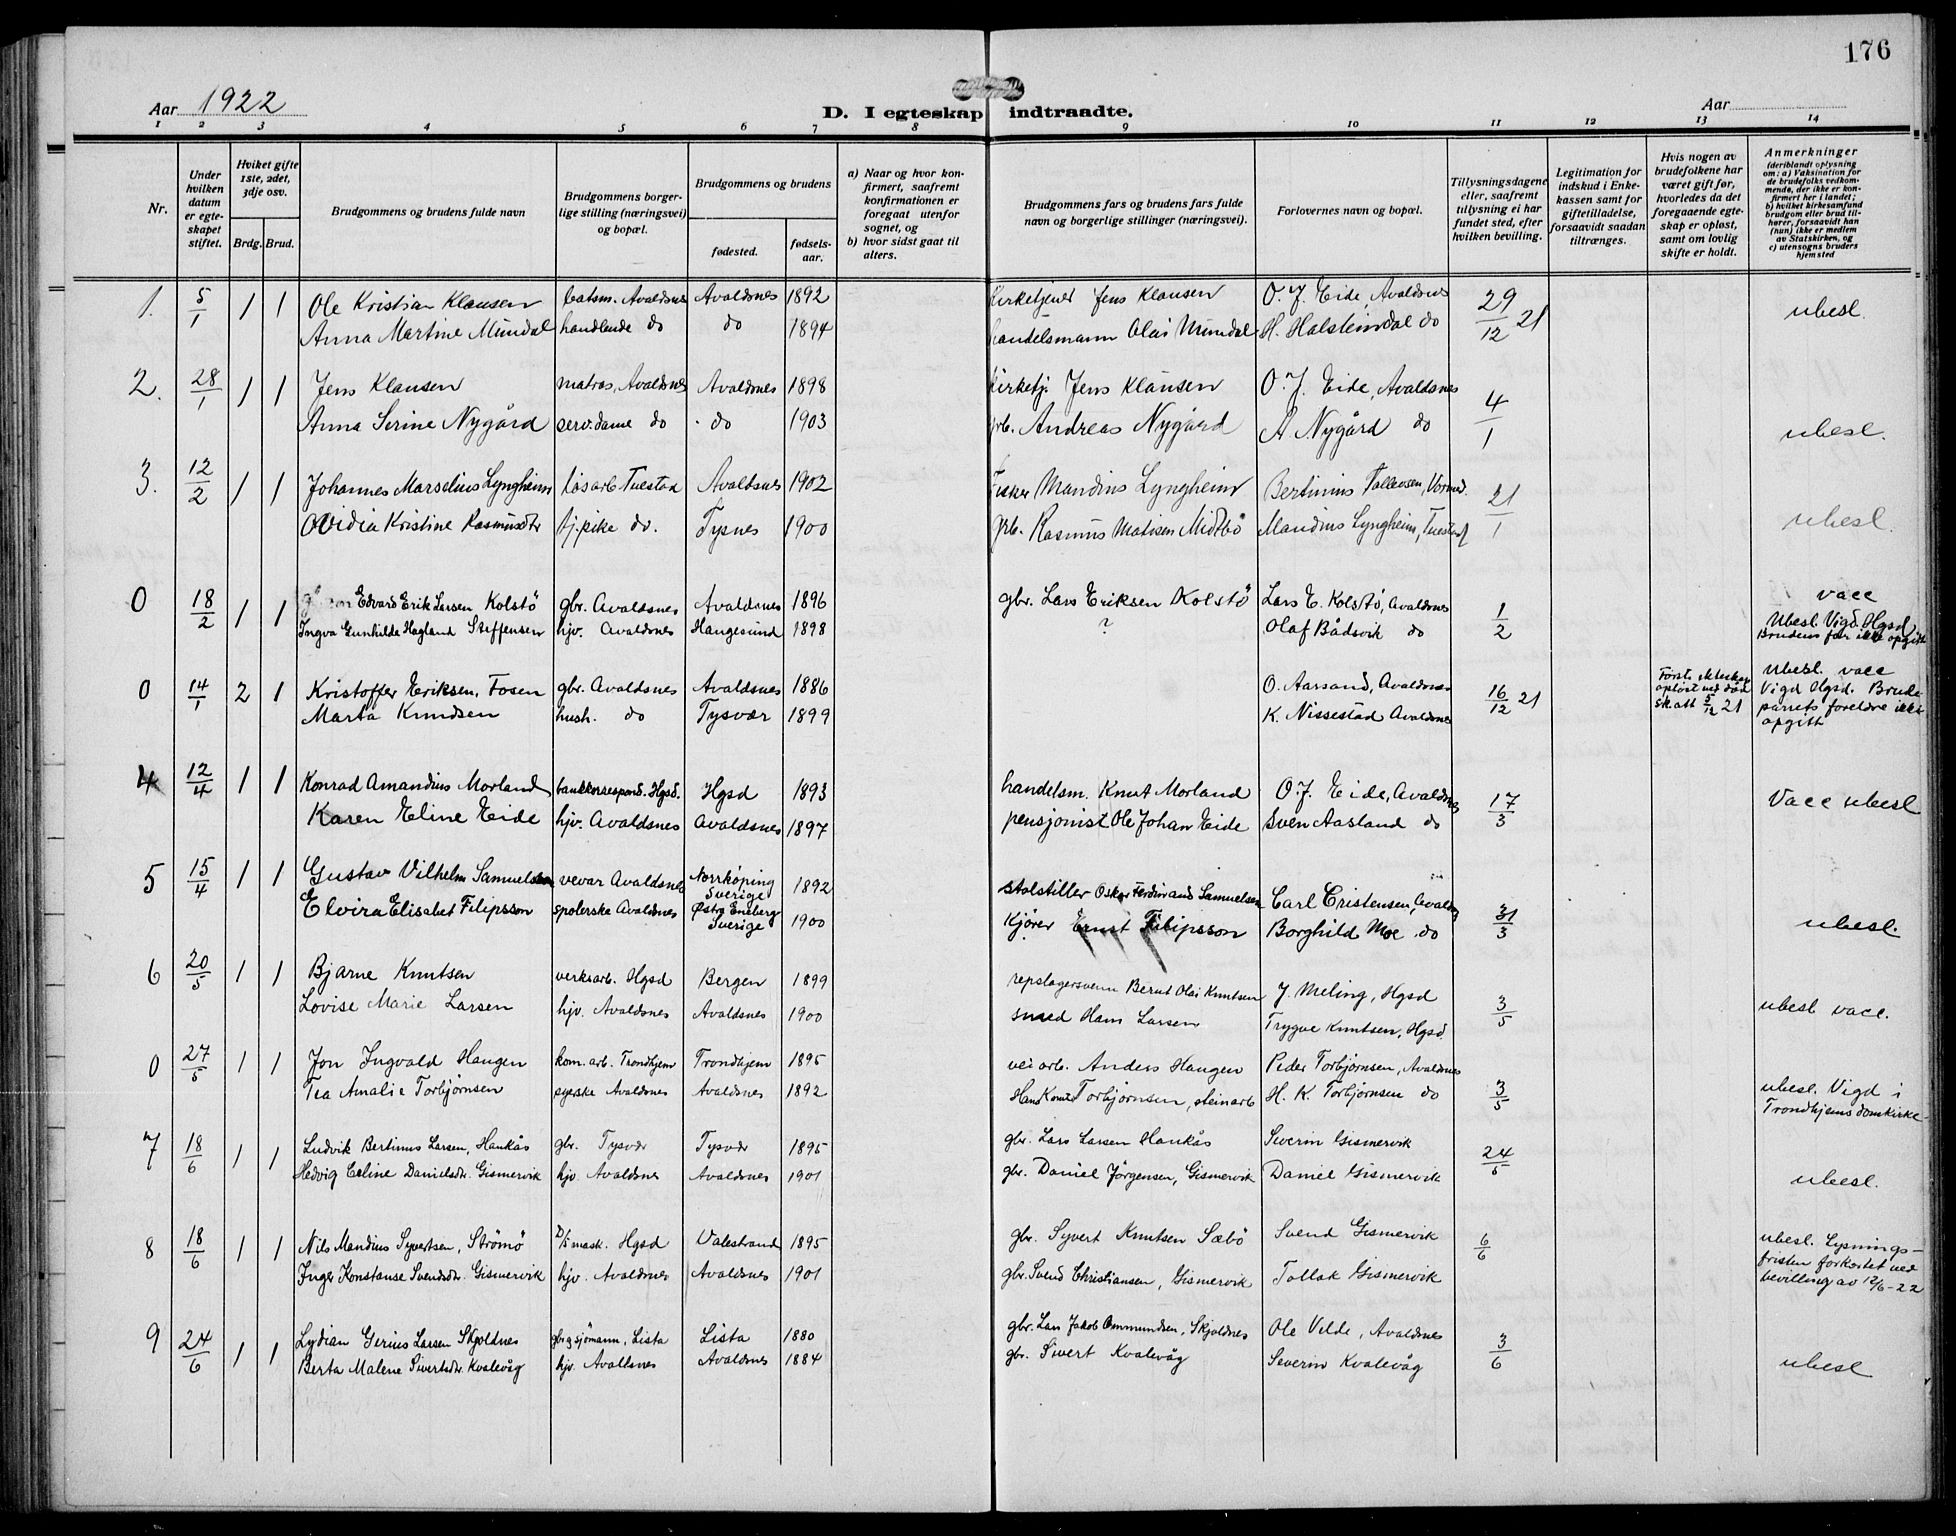 176
Aar 1922
D. I egteskap indtraadte.
Aar
1 2 3 4 5 6 7 8 9 10 11 12 13 14
Nr.
Under hvilken datum er egteskapet stiftet.
Hviket gifte 1ste, 2det, 3dje osv.
Brdg. Brud.
Brudgommens og brudens fulde navn
Brudgommens borgerlige stilling (næringsvei) og bopæl.
Brudgommens og brudens
fødested.
fødselsaar.
a) Naar og hvor konfirmert, saafremt konfirmationen er foregaat utenfor sognet, og
b) hvor sidst gaat til alters.
Brudgommens fars og brudens fars fulde navn og borgerlige stillinger (næringsvei).
Forlovernes navn og bopæl.
Tillysningsdagene eller, saafremt tillysning ei har fundet sted, efter hvilken bevilling.
Legitimation for indskud i Enkekassen samt for giftetilladelse, forsaavidt saadan tiltrænges.
Hvis nogen av brudefolkene har været gift før, hvorledes da det foregaaende egteskap er opløst, samt om lovlig skifte er holdt.
Anmerkninger (deriblandt oplysning om: a) Vaksination for de brudefolks vedkommende, der ikke er konfirmert her i landet; b) hvilket kirkesamfund brudgom eller brud tilhører, forsaavidt han (nun) ikke er medlem av Statskirken, og c) utensogns bruders hjemsted
1. 5/1 1 1 Ole Kristian Klausen baism. Avaldsnes Avaldsnes 1892 Kirketjener Jens Klausen O. J. Eide, Avaldsnes 29/12 21 ubesl.
Anna Martine Mundal handlende do do 1894 handelsmann Olai Mundal H. Halsteinsdal do
2. 28/1 1 1 Jens Klausen matros, Avaldsnes Avaldsnes 1898 Kirketj. Jens Klausen O. J. Eide, Avaldsnes 4/1
Anna Serine Nygård serv.dame do do 1903 grb. Andreas Nygård A Nygård do ubesl.
3. 12/2 1 1 Johannes Marselius Lyngheim løsarb. Tuestad Avaldsnes 1902 Fisker Mandius Lyngheim Bertinius Tollevsen, Vormed. 21/1
Ovidia Kristine Rasmusdtr tj.pike do. Tysnes 1900 grb. Rasmus Matisen Midtbö Mandius Lyngheim, Tuestad ubesl.
0 18/2 1 1 Edvard Erik Larsen Kolstö gbr. Avaldsnes Avaldsnes 1896 gbr. Lars Eriksen Kolstö Lars E. Kolstö, Avaldsnes 1/2 vacc
Ingva Gunhilde Hagland Steffensen hjv. Avaldsnes Haugesund 1898 ? Olaf Bådsvik do Ubesl. Vigd. Hgsd
Brudens far ikke opgitt
0 14/1 2 1 Kristoffer Eriksen, Fosen gbr. Avaldsnes Avaldsnes 1886 O. Aarsand, Avaldsnes 16/12 21 Første ekteskap opløst ved død skatt 5/12 21 Ubesl. vacc
Marta Knudsen hush. do Tysvær 1899 K. Nissestad Avaldsnes Vigd Hgsd. Brudeparrets foreldre ikke opgitt
4 12/4 1 1 Konrad Amandius Morland bankkorrespond. Hgsd. Hgsd 1893 handelsm. Knut Morland O. J. Eide, Avaldsnes 17/3 Vacc ubesl
Karen Eline Eide hjv. Avaldsnes Avaldsnes 1897 pensjonist Ole Johan Eide Sven Aasland do
5 15/4 1 1 Gustav Vilhelm Samuelsson vevar Avaldsnes Norrköping Sverige 1892 stolstiller Oskar Ferdinand Samuelsen Carl Cristensen, Avaldsn 31/3
Elvira Elisabet Filipsson spolerske Avaldsnes Östra Eneberg Sverige 1900 Kjører Ernst Filipsson Borghild Moe do ubesl.
6 20/5 1 1 Bjarne Knutsen verksarb. Hgsd Bergen 1899 repslagersvenn Bernt Olai Knutsen J. Meling, Hgsd 3/5 ubesl vacc.
Lovise Marie Larsen hjv. Avaldsnes Avaldsnes 1900 smed Hans Larsen Trygve Knutsen, Hgsd
0 27/5 1 1 Jon Ingvald Haugen kom. arb. Trondhjem Trondhjem 1895 vei arb. Anders Haugen Peder Torbjørnsen, Avaldsnes 3/5 ubesl. Vigd i
Tea Amalie Torbjørnsen syerske Avaldsnes Avaldsnes 1892 Hans Knuts Torbjørnsen, steinarb H. K. Torbjørnsen do Trondhjems domkirke
7 18/6 1 1 Ludvik Bertinus Larsen, Haukås gbr. Tysvær Tysvær 1895 gbr. Lars Larsen Haukås Severin Gismervik 24/5
Hedvig Celine Danielsdtr. Gismervik hjv. Avaldsnes Avaldsnes 1901 gbr. Daniel Jörgensen, Gismervik Daniel Gismervik ubesl.
8 18/6 1 1 Nils Mandius Syvertsen, Strömö D/S mask. Hgsd Valestrand 1895 gbr. Syvert Knutsen Sæbö Svend Gismervik 6/6 ubesl. Lysningsfristen forkortet ved bevilling av 12/6-22
Inger Konstanse Svendsdtr. Gismervik hjv. Avaldsnes Avaldsnes 1901 gbr. Svend Christiansen, Gismervik Tollak Gismervik
9 24/6 1 1 Lydian Gerius Larsen Skjoldnes gbr. og sjömann, Lista Lista 1880 gbr. Lars Jakob Ommundsen, Skjoldnes Ole Velde, Avaldsnes 3/6
Berta Malene Sivertsdtr. Kvalevåg hjv. Avaldsnes Avaldsnes 1884 gbr. Sivert Kvalevåg Severin Kvalevåg ubesl